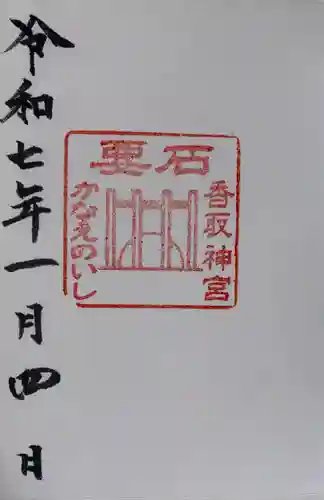 令和七年一月四日
要石
香取神宮
かなめのいし